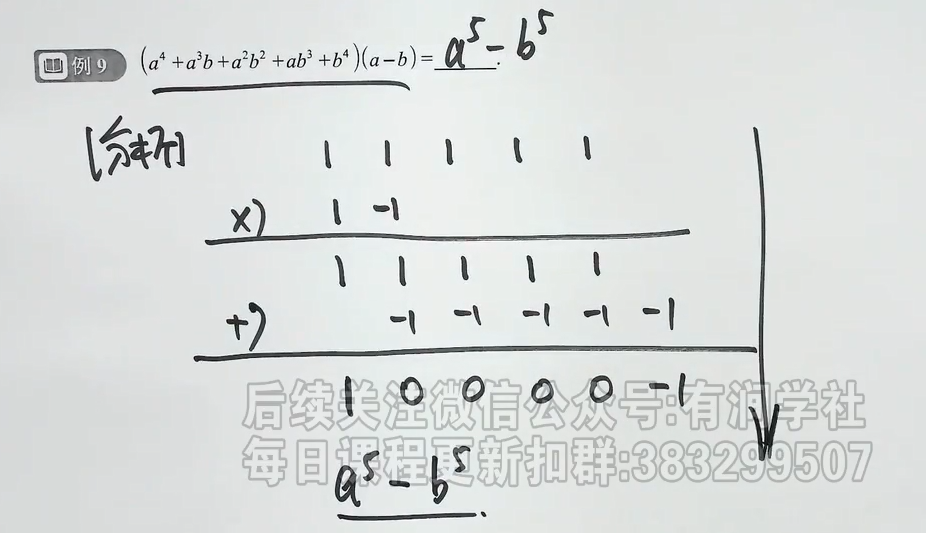 例 9 (a⁴+a³b+a²b²+ab³+b⁴)(a-b)=a⁵-b⁵.
[分析] 1 1 1 1 1
×) 1 -1
1 1 1 1 1
+) -1 -1 -1 -1 -1
1 0 0 0 0 -1
后续关注微信公众号:有润学社
每日课程更新扣群:383299507
a⁵-b⁵.